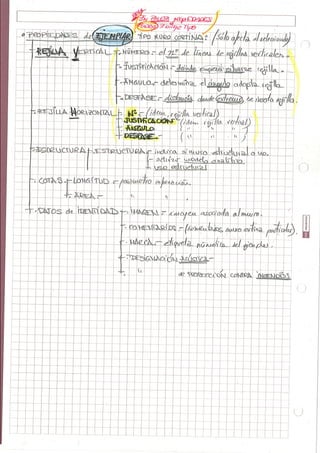 • PROPIEDADES de EJEMPLAR TIPO MURO CORTINA: (Sólo afecta al seleccionado)
REJILLA VERTICAL - NÚMERO = el nº de líneas de rejillas verticales.
- JUSTIFICACIÓN = donde empieza rejilla.
- ÁNGULO = determina el ángulo adopta rejilla.
- DESFASE = distancia desde extremo se inserta rejilla.
- REJILLA HORIZONTAL - Nº = (idem rejilla vertical)
- JUSTIFICACIÓN (idem rejilla vertical)
- ÁNGULO ( " " " )
- DESFASE ( " " " )
- ESTRUCTURA - ESTRUCTURA = indica si muro estructural o no.
- activar modelo analítico
- uso estructural
- COTAS - LONGITUD =
- ÁREA = "
- DATOS de IDENTIDAD - IMAGEN = imagen asociada al muro.
- COMENTARIOS = (comentarios muro cortina particular).
- MARCA = etiqueta numérica del ejemplar.
- DESIGNACIÓN ACÚSTICA -
- " de PROTECCIÓN CONTRA INCENDIOS